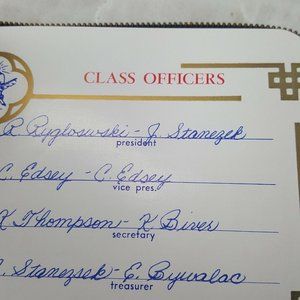 CLASS OFFICERS
R. Rygloswski - J. Stanezek
president
C. Edsey - C. Edsey
vice pres.
K Thompson - K. Biver
secretary
Stanezsek - E. Bywalac
treasurer